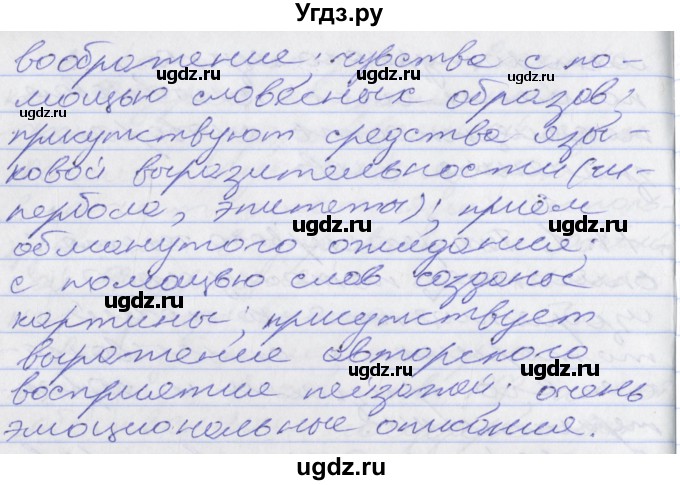 Угдз.ру
воображение; чувства с по-
мощью словесных образов;
присутствуют средства язы-
ковой выразительности (ги-
пербола, эпитеты); приём
обманутого ожидания;
с помощью слов созданы
картины; присутствует
выражение авторского
восприятия пейзажа; очень
эмоциональные описания.
ugdz.ru
ugdz.ru
ugdz.ru
ugdz.ru
ugdz.ru
ugdz.ru
ugdz.ru
ugdz.ru
ugdz.ru
ugdz.ru
ugdz.ru
ugdz.ru
ugdz.ru
ugdz.ru